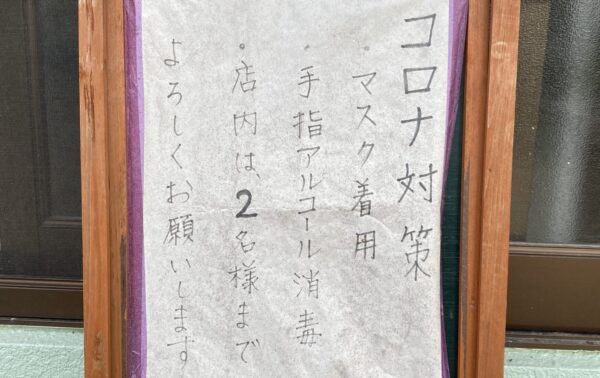 コロナ対策
・マスク着用
・手指アルコール消毒
・店内は、2名様まで
よろしくお願いします